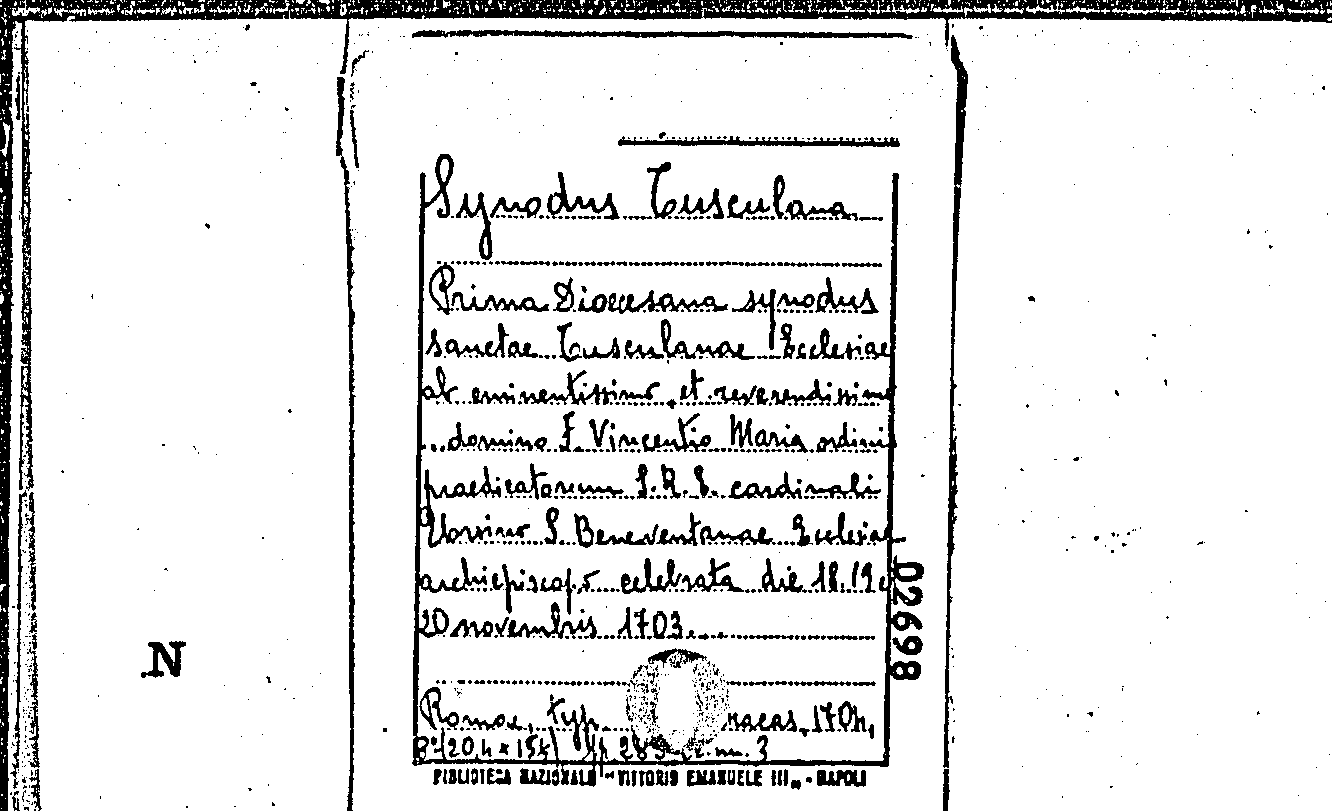 Synodus Tusculana
Prima Dioecesana synodus
sanctae Tusculanae Ecclesiae
ab eminentissimo et reverendissimo
...domino F. Vincentio Maria ordinis
praedicatorum S.R.E. cardinali
Ursino S. Beneventanae Ecclesiae
archiepiscopo celebrata die 18.19 e
20 novembris 1703...
Romae, typ. 1704,
8°(20,4 x 15,4) pp. 289 nn. 3
BIBLIOTECA NAZIONALE "VITTORIO EMANUELE III" - NAPOLI
02698
N